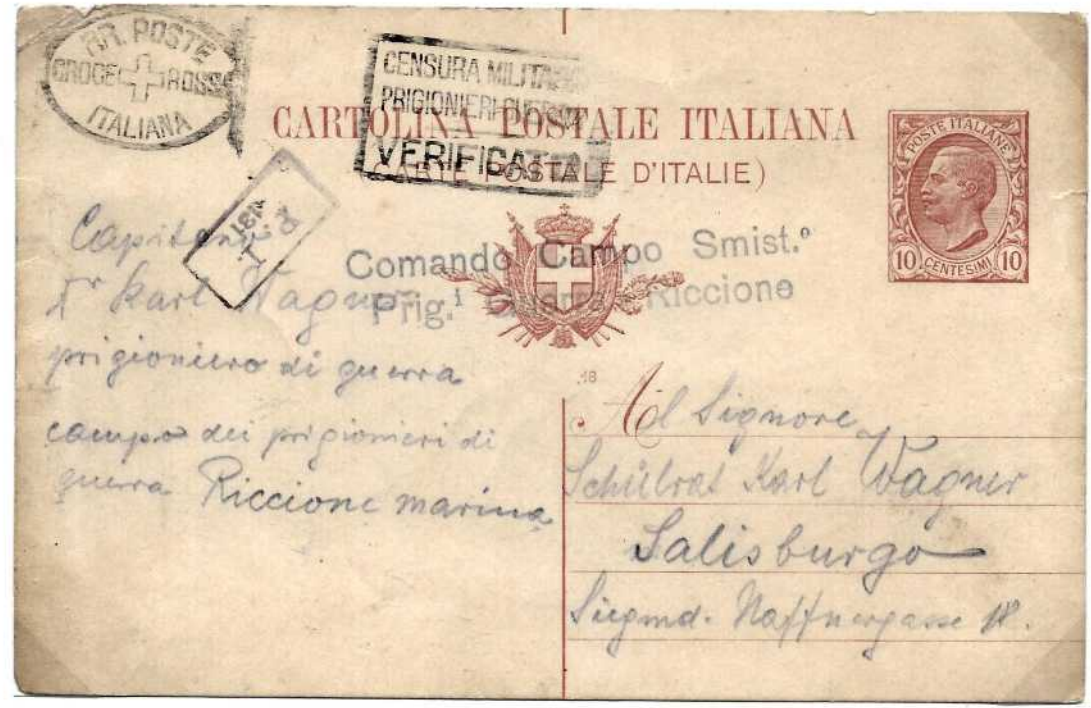 RR. POSTE
CROCE ROSSA
ITALIANA
CENSURA MILITARE
PRIGIONIERI GUERRA
VERIFICATA
CARTOLINA POSTALE ITALIANA
(CARTE POSTALE D'ITALIE)
POSTE ITALIANE
10 CENTESIMI 10
Comando Campo Smist.º
Prig.i Guerra Riccione
Capitano
Dr Karl Wagner
prigioniero di guerra
campo dei prigionieri di
guerra Riccione marina
18
Al Signore
Schulrat Karl Wagner
Salisburgo
Siegmd. Haffnergasse 18.